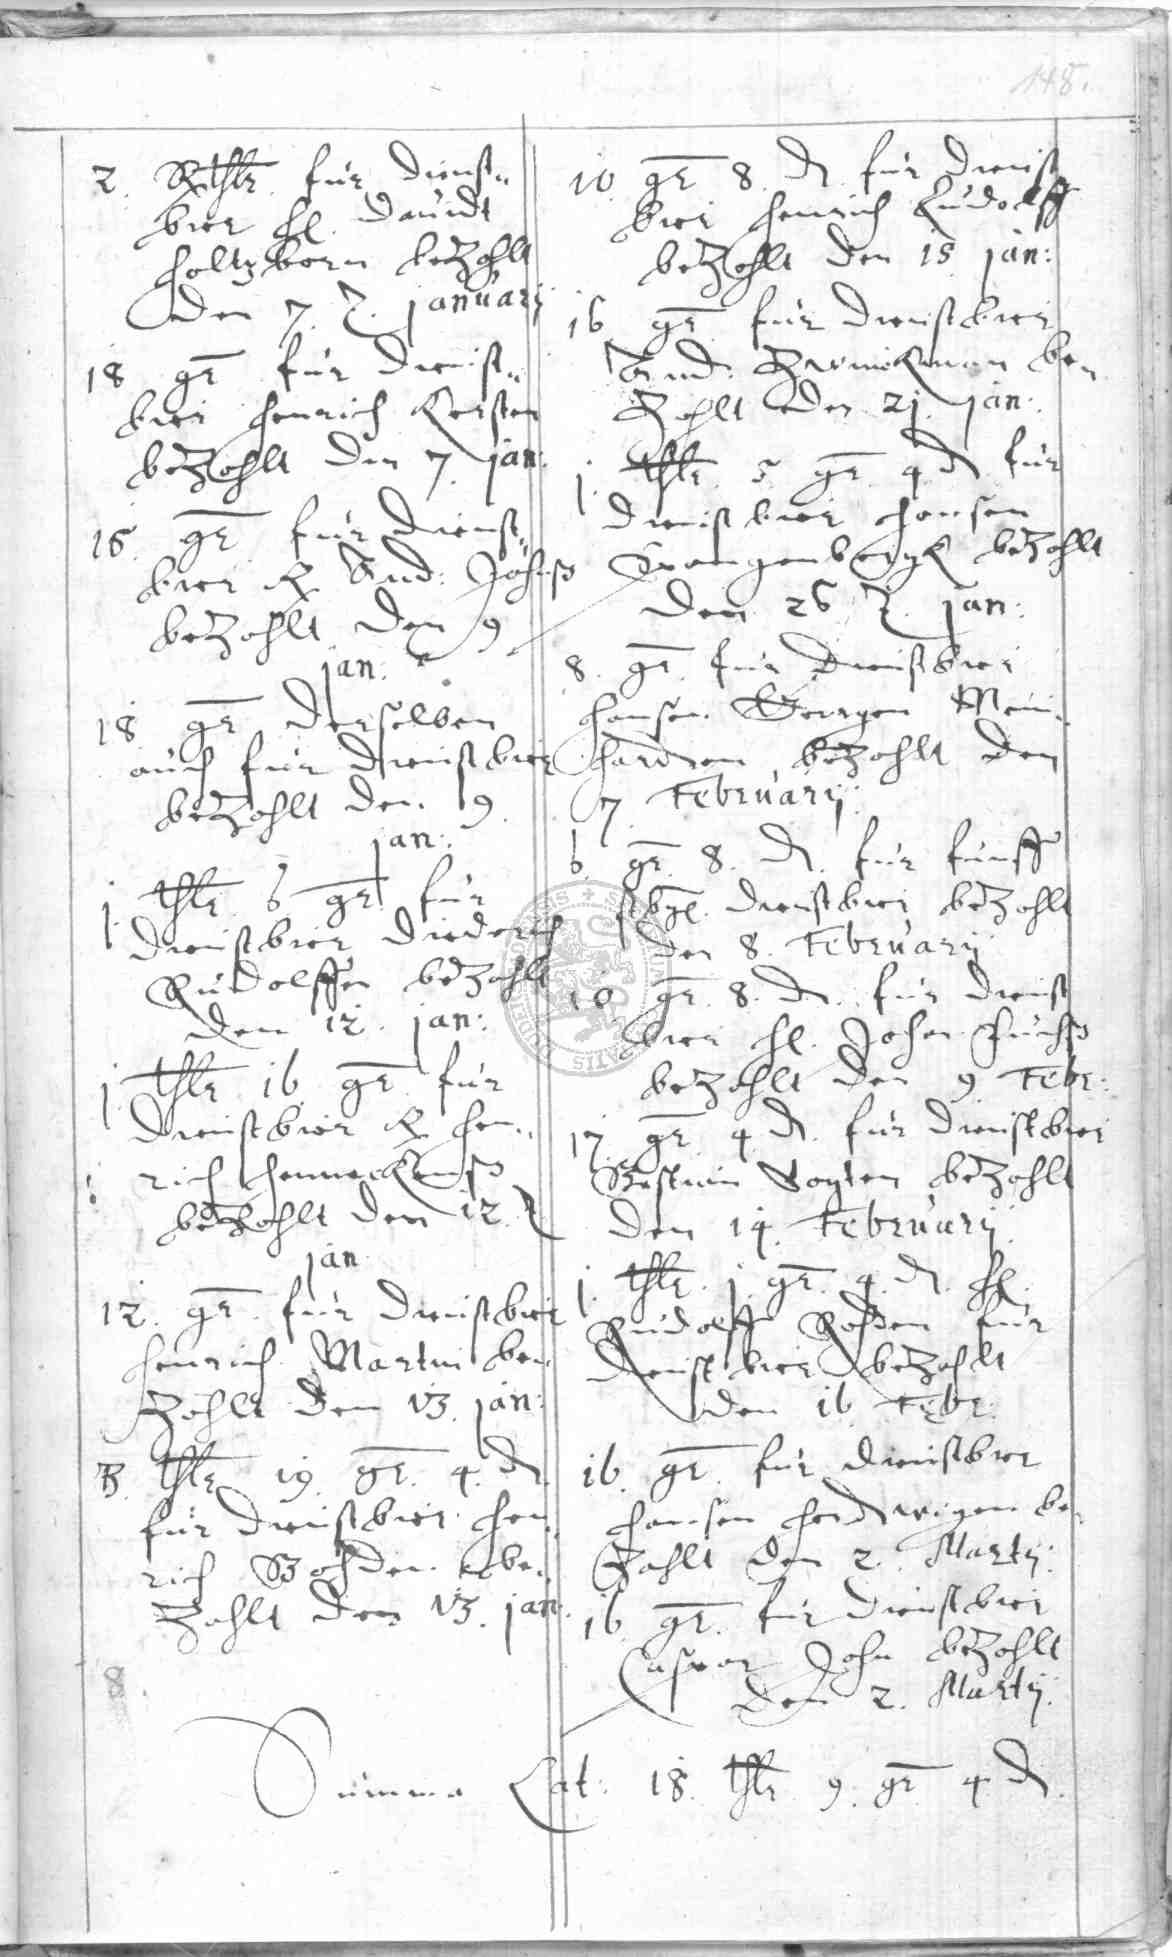 148.
2. Rthlr. für dienst-
bier H. Dauidt
Holtzborn bezahlt
den 7. januarij
18 gr für dienst-
bier Henrich Kersten
bezahlt den 7. jan:
18. gr für dienst-
bier And: Johnß
bezahlt den 9
jan:
18 gr derselben
auch für dienstbier
bezahlt den. 9.
jan:
j thlr. 6 gr. für
dienstbier Diederich
Rudolffen bezahlt
den 12. jan:
j thlr 16 gr. für
dienstbier Hen-
rich
bezahlt den 12.
jan
12. gr. für dienstbier
Henrich Martin be-
zahlt den 13. jan:
3. thlr 19. gr. 4. d
für dienstbier Hen-
rich be-
zahlt den 13. jan:
10 gr 8. d für dienst
bier Henrich Ludolff
bezahlt den 18 jan:
16 gr für dienstbier
And. be-
zahlt den 21. jan:
j. thlr. 5. gr. 4. d für
dienstbier Hansen
bezahlt
den 26 jan:
8. gr. für dienstbier
Hansen Georgen Mein-
harden bezahlt den
7. Februarij.
6. gr. 8. d. für funff
stbgl. dienstbier bezahlt
den 8. Februarij
10 gr. 8. d. für dienst
bier H. Johan Fuchß
bezahlt den 9 Febr:
17. gr 4 d. für dienstbier
Bastian Vogten bezahlt
den 14. Februarij.
j. thlr. j. gr. 4. d H.
Rudolff Rohden für
dienstbier bezahlt
den 16 Febr.
16. gr. für dienstbier
Hansen be-
zahlt den 2. Martij:
16. gr. für dienstbier
Caspar John bezahlt
den 2. Martij.
Summa Lat: 18. thlr 9. gr 4 d.